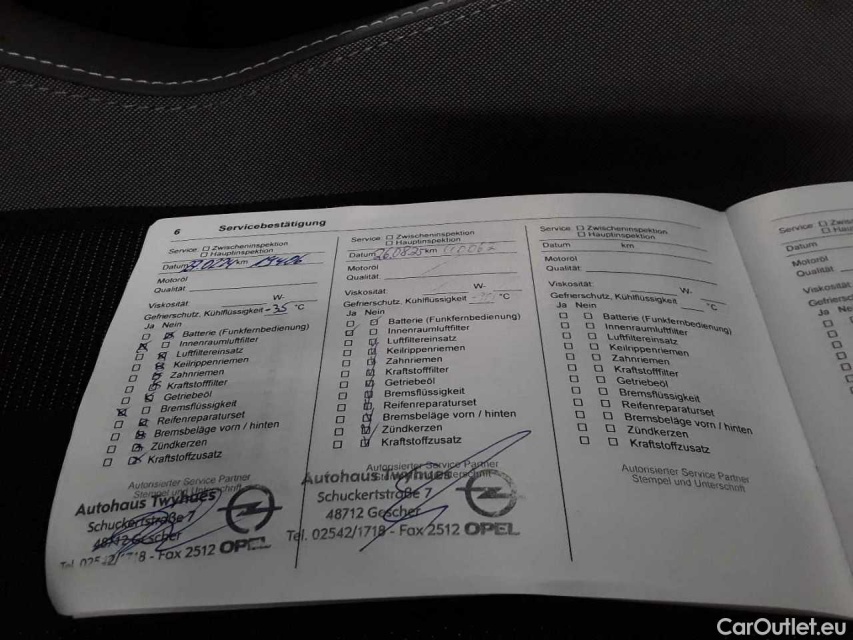 6 Servicebestätigung
Service: ☐ Zwischeninspektion
☐ Hauptinspektion
Datum km 19406
Motoröl
Qualität
Viskosität W-
Gefrierschutz, Kühlflüssigkeit -35 °C
Ja Nein
Batterie (Funkfernbedienung)
Innenraumluftfilter
Luftfiltereinsatz
Keilrippenriemen
Zahnriemen
Kraftstofffilter
Getriebeöl
Bremsflüssigkeit
Reifenreparaturset
Bremsbeläge vorn / hinten
Zündkerzen
Kraftstoffzusatz
Autorisierter Service Partner
Stempel und Unterschrift
Autohaus Twyhues
Schuckertstraße 7
48712 Gescher
Tel. 02542/1718 - Fax 2512 OPEL
Service: ☐ Zwischeninspektion
☐ Hauptinspektion
Datum 26.08.25 km
Motoröl
Qualität
Viskosität W-
Gefrierschutz, Kühlflüssigkeit °C
Ja Nein
Batterie (Funkfernbedienung)
Innenraumluftfilter
Luftfiltereinsatz
Keilrippenriemen
Zahnriemen
Kraftstofffilter
Getriebeöl
Bremsflüssigkeit
Reifenreparaturset
Bremsbeläge vorn / hinten
Zündkerzen
Kraftstoffzusatz
Autorisierter Service Partner
Autohaus Twyhues
Schuckertstraße 7
48712 Gescher
Tel. 02542/1718 - Fax 2512 OPEL
Service: ☐ Zwischeninspektion
☐ Hauptinspektion
Datum km
Motoröl
Qualität:
Viskosität: W-
Gefrierschutz, Kühlflüssigkeit °C
Ja Nein
Batterie (Funkfernbedienung)
Innenraumluftfilter
Luftfiltereinsatz
Keilrippenriemen
Zahnriemen
Kraftstofffilter
Getriebeöl
Bremsflüssigkeit
Reifenreparaturset
Bremsbeläge vorn / hinten
Zündkerzen
Kraftstoffzusatz
Autorisierter Service Partner
Stempel und Unterschrift
Service:
Datum
Motoröl
Qualität:
Ja
CarOutlet.eu